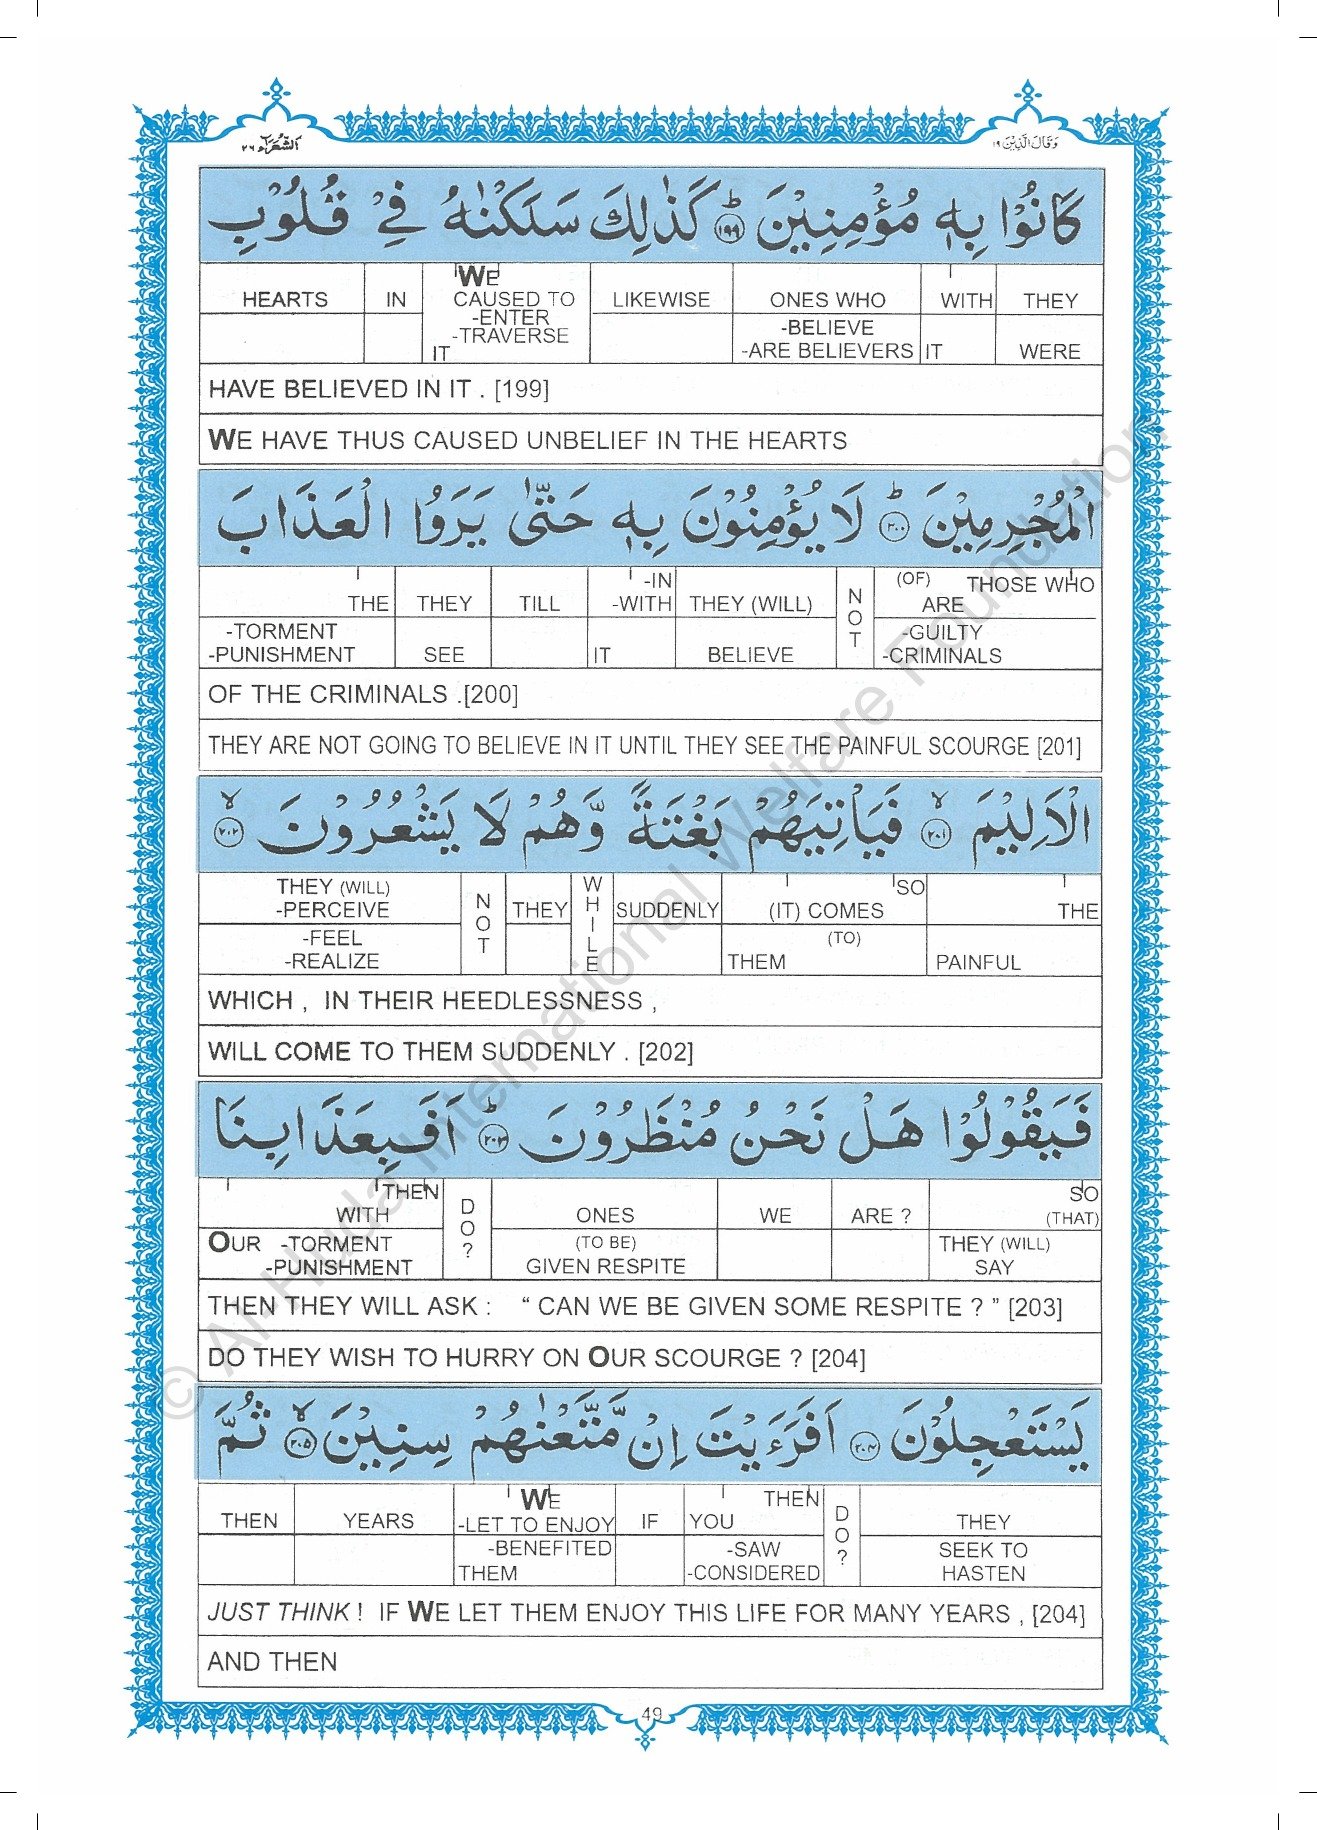 الشعراء ٢٦
وقال الذین ١٩
كَانُوْا بِهٖ مُؤْمِنِيْنَ ؕ ﴿۱۹۹﴾ كَذٰلِكَ سَلَكْنٰهُ فِيْ قُلُوْبِ
HEARTS IN WE CAUSED TO -ENTER -TRAVERSE IT LIKEWISE ONES WHO -BELIEVE -ARE BELIEVERS WITH IT THEY WERE
HAVE BELIEVED IN IT . [199]
WE HAVE THUS CAUSED UNBELIEF IN THE HEARTS
الْمُجْرِمِيْنَ ؕ ﴿۲۰۰﴾ لَا يُؤْمِنُوْنَ بِهٖ حَتّٰى يَرَوُا الْعَذَابَ
THE -TORMENT -PUNISHMENT THEY SEE TILL -IN -WITH IT THEY (WILL) BELIEVE NOT (OF) THOSE WHO ARE -GUILTY -CRIMINALS
OF THE CRIMINALS .[200]
THEY ARE NOT GOING TO BELIEVE IN IT UNTIL THEY SEE THE PAINFUL SCOURGE [201]
الْاَلِيْمَ ۙ ﴿۲۰۱﴾ فَيَاْتِيَهُمْ بَغْتَةً وَّهُمْ لَا يَشْعُرُوْنَ ۙ ﴿۲۰۲﴾
THEY (WILL) -PERCEIVE -FEEL -REALIZE NOT THEY WHILE SUDDENLY SO (IT) COMES (TO) THEM THE PAINFUL
WHICH , IN THEIR HEEDLESSNESS ,
WILL COME TO THEM SUDDENLY . [202]
فَيَقُوْلُوْا هَلْ نَحْنُ مُنْظَرُوْنَ ؕ ﴿۲۰۳﴾ اَفَبِعَذَابِنَا
THEN WITH OUR -TORMENT -PUNISHMENT DO? ONES (TO BE) GIVEN RESPITE WE ARE ? SO (THAT) THEY (WILL) SAY
THEN THEY WILL ASK : “ CAN WE BE GIVEN SOME RESPITE ? ” [203]
DO THEY WISH TO HURRY ON OUR SCOURGE ? [204]
يَسْتَعْجِلُوْنَ ﴿۲۰۴﴾ اَفَرَءَيْتَ اِنْ مَّتَّعْنٰهُمْ سِنِيْنَ ۙ ﴿۲۰۵﴾ ثُمَّ
THEN YEARS WE -LET TO ENJOY -BENEFITED THEM IF THEN YOU -SAW -CONSIDERED DO? THEY SEEK TO HASTEN
JUST THINK ! IF WE LET THEM ENJOY THIS LIFE FOR MANY YEARS , [204]
AND THEN
49
© Al-Huda International Welfare Foundation